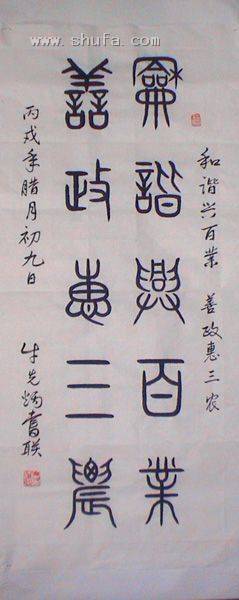 www.shufa.com
和谐兴百业 善政惠三农
龢諧興百業
善政惠三農
丙戌年腊月初九日
牛先炳書联